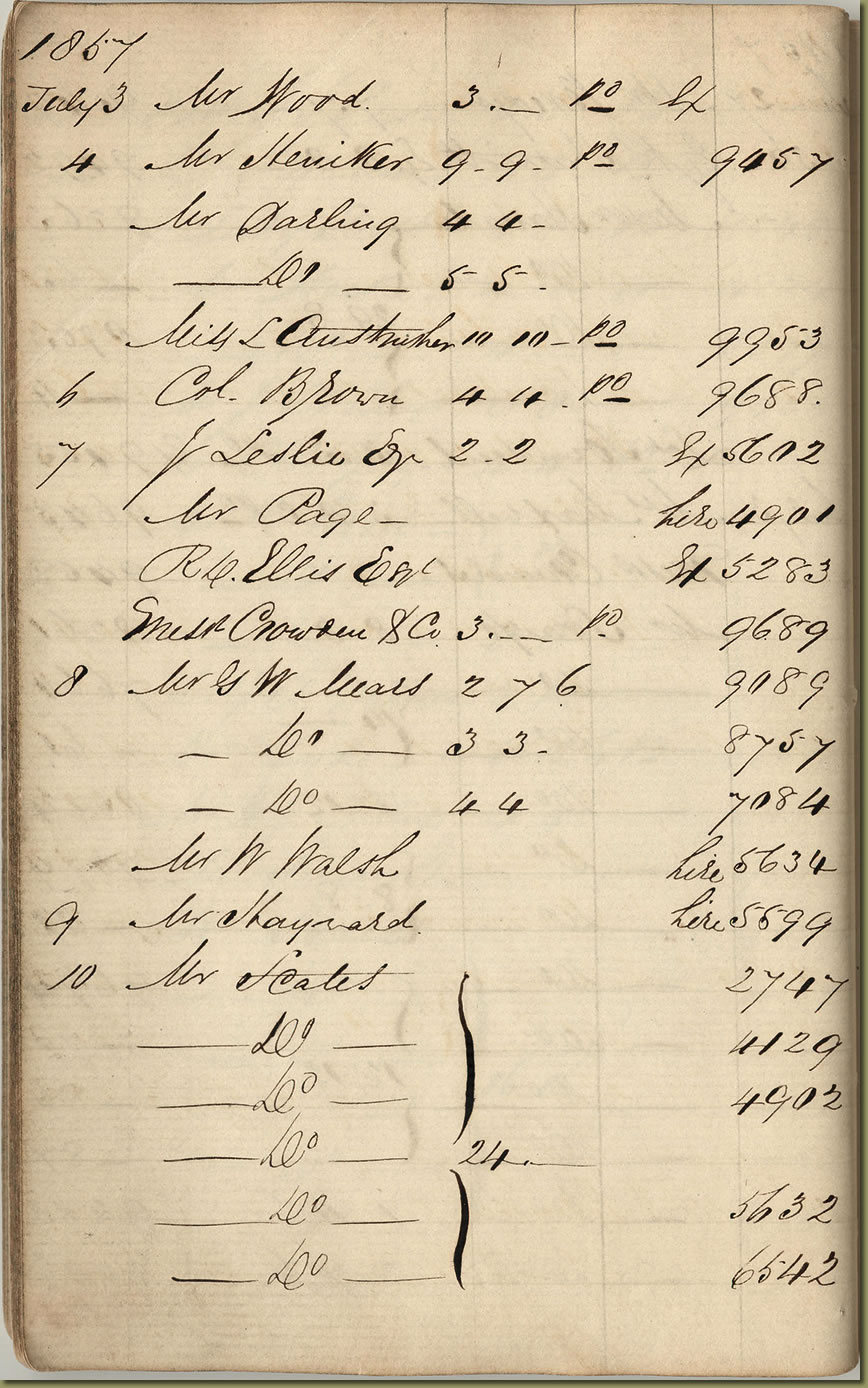 1857
July 3 Mr Wood. 3. — pd Ex
4 Mr Heniker 9 - 9 - pd 9457
Mr Darling 4 4 -
— Do — 5 5 -
Miss L Anstruther 10 10 - pd 9953
6 Col. Brown 4 4 . pd 9688.
7 J Leslie Esqr 2 - 2 Ex 5602
Mr Page — hire 4901
R Ellis Esqr Ex 5283
Messrs Crowden & Co 3. — pd 9689
8 Mr G W Mears 2 7 6 9089
— Do — 3 3 - 8757
— Do — 4 4 7084
Mr W Walsh hire 5634
9 Mr Hayward. hire 5699
10 Mr Scates 2747
— Do — 4129
— Do — 4902
— Do — 24. —
— Do — 5632
— Do — 6542